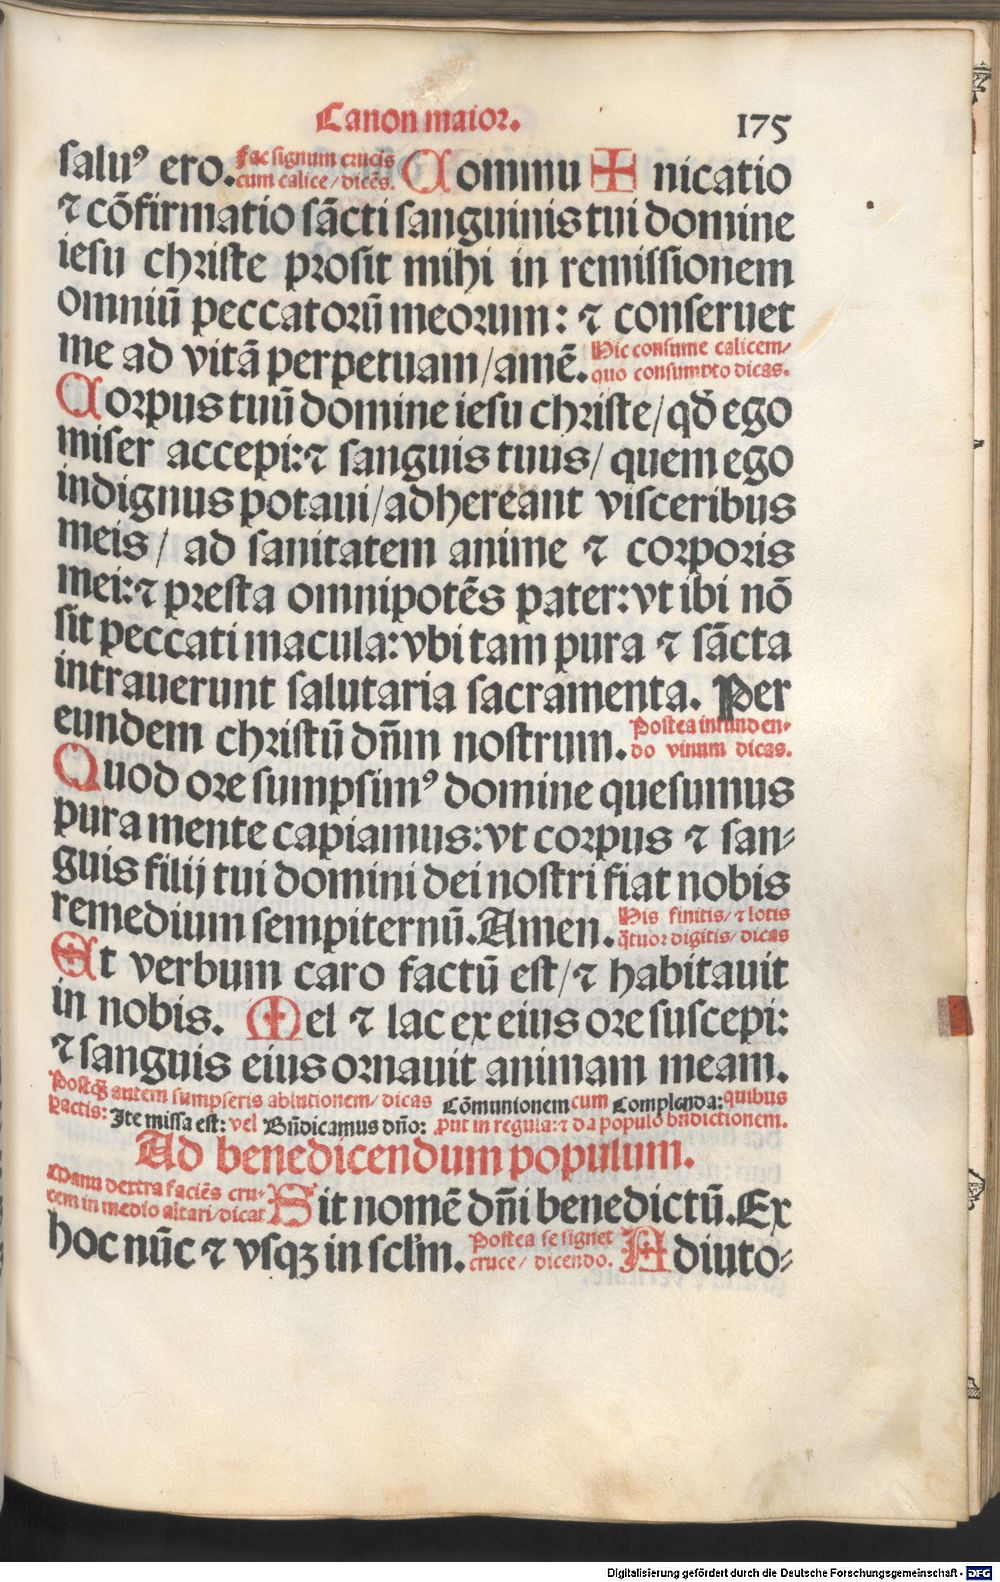 Canon maior. 175
saluꝰ ero. Fac signum crucis cum calice/dicẽs. Commu ✠ nicatio
⁊ cõfirmatio sãcti sanguinis tui domine
iesu christe prosit mihi in remissionem
omniũ peccatorũ meorum: ⁊ conseruet
me ad vitã perpetuam/amẽ. Hic consume calicem/ quo consumpto dicas.
Corpus tuũ domine iesu christe/ qđ ego
miser accepi:⁊ sanguis tuus/ quem ego
indignus potaui/adhereant visceribus
meis/ ad sanitatem anime ⁊ corporis
mei:⁊ presta omnipotẽs pater:vt ibi nõ
sit peccati macula:vbi tam pura ⁊ sãcta
intrauerunt salutaria sacramenta. Per
eundem christũ dñm nostrum. Postea infunden-do vinum dicas.
Quod ore sumpsimꝰ domine quesumus
pura mente capiamus:vt corpus ⁊ san-
guis filij tui domini dei nostri fiat nobis
remedium sempiternũ.Amen. His finitis/⁊ lotis q̃tuor digitis/dicas
Et verbum caro factũ est/⁊ habitauit
in nobis. Mel ⁊ lac ex eius ore suscepi:
⁊ sanguis eius ornauit animam meam.
Postq̃ autem sumpseris ablutionem/dicas Cõmunionem cum Complenda:quibus
pactis: Ite missa est: vel Bñdicamus dño: put in regula:⁊ da populo bñdictionem.
Ad benedicendum populum.
Manu dextra faciẽs cru-cem in medio altari/dicat Sit nomẽ dñi benedictũ.Ex
hoc nũc ⁊ vsqꝫ in scl'm. Postea se signet cruce/ dicendo. Adiuto-
Digitalisierung gefördert durch die Deutsche Forschungsgemeinschaft - DFG